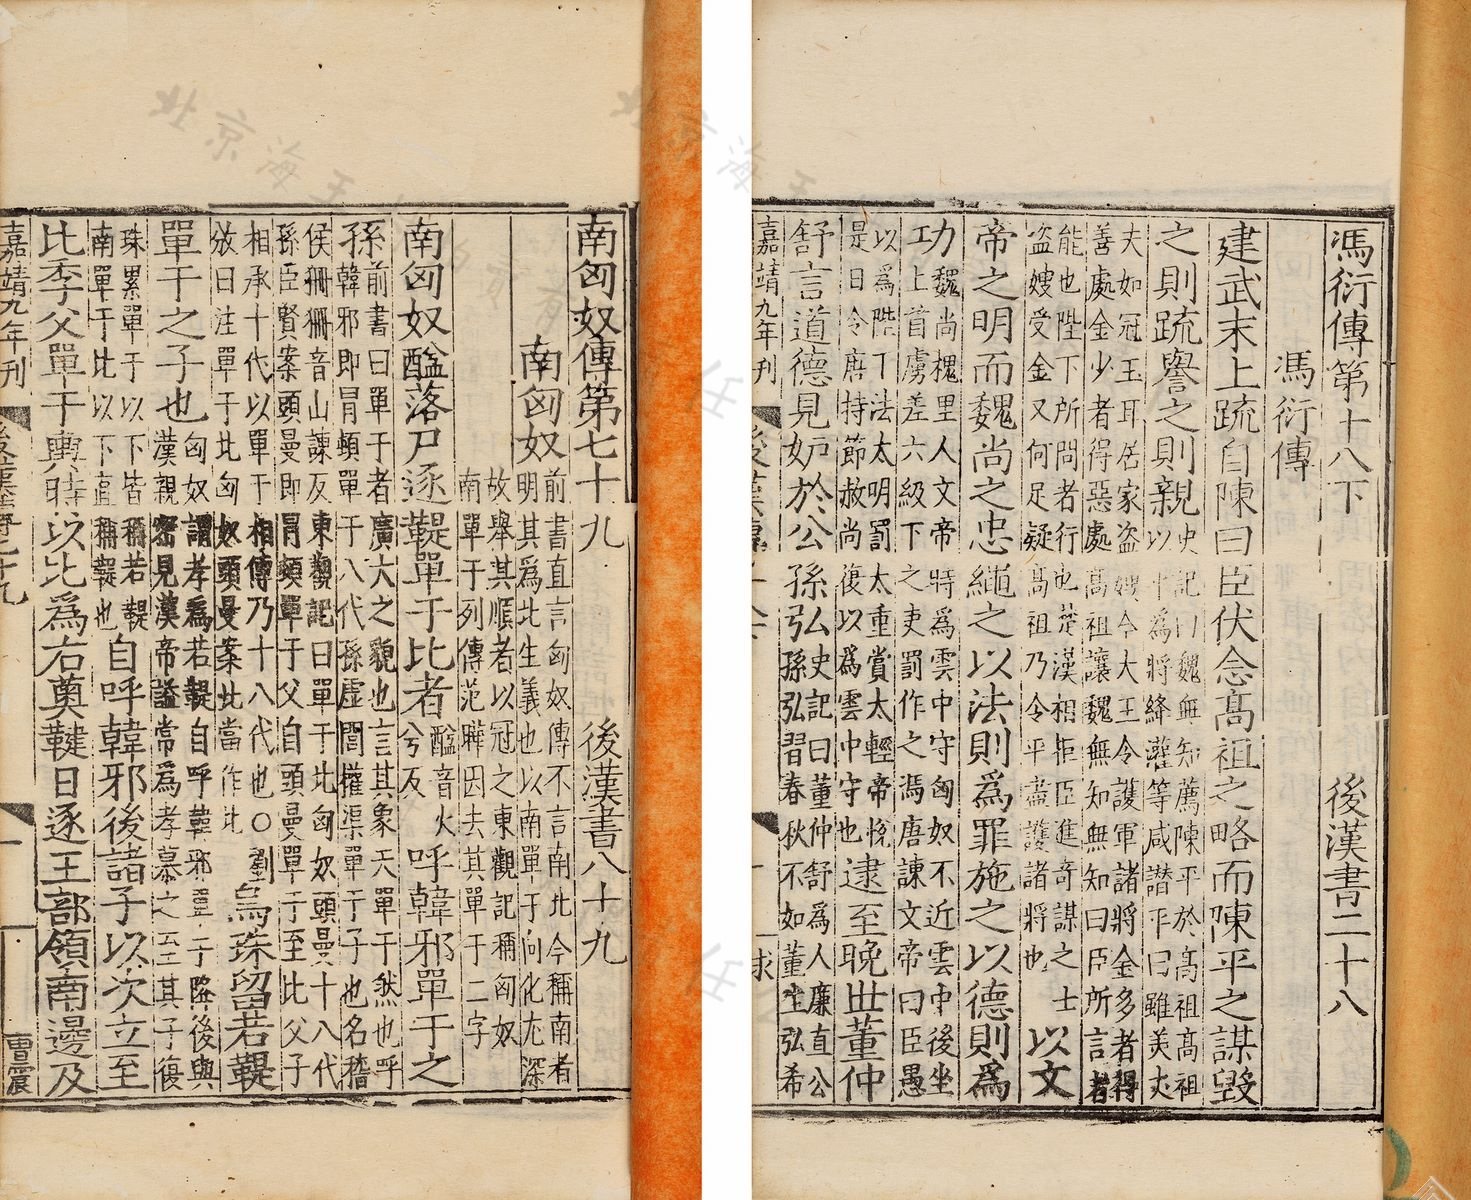 馮衍傳第十八下　後漢書二十八
馮衍傳
建武末上疏自陳曰臣伏念髙祖之略而陳平之謀毀
之則疏譽之則親史記曰魏無知薦陳平於髙祖髙祖
以平爲將絳灌等咸讃平曰雖美丈
夫如冠玉耳居家盜嫂今大王令護軍諸將金多者得
善處金少者得惡處髙祖讓魏無知無知曰臣所言者
能也陛下所問者行也楚漢相拒臣進奇謀之士
盜嫂受金又何足疑髙祖乃令平盡護諸將也以文
帝之明而魏尚之忠繩之以法則爲罪施之以德則爲
功魏尚槐里人文帝時爲雲中守匈奴不近雲中後坐
上首虜差六級下之吏罰作之馮唐諫文帝曰臣愚
以爲陛下法太明罰太重賞太輕帝悅
是日令唐持節赦尚復以爲雲中守也逮至晚世董仲
舒言道德見妒於公孫弘史記曰董仲舒爲人廉直公
孫弘習春秋不如董生弘希
嘉靖九年刊
南匈奴傳第七十九　後漢書八十九
南匈奴前書直言匈奴傳不言南北今稱南者
明其爲北生義也以南單于向化尤深
故舉其順者以冠之東觀記稱匈奴
南單于列傳范曄因去其單于二字
南匈奴醢落尸逐鞮單于比者醢音火兮反呼韓邪單于之
孫前書曰單于者廣大之貌也言其象天單于然也呼
韓邪即冒頓單于八代孫虛閭權渠單于子也名稽
侯狦狦音山諫反東觀記曰單于比匈奴頭曼十八代
孫臣賢案頭曼即冒頓單于父自頭曼單于至比父子
相承十代以單于相傳乃十八代也○劉
攽曰注單于比匈奴頭曼案比當作此烏珠留若鞮
單于之子也匈奴謂孝爲若鞮自呼韓邪單于降後與
漢親密見漢帝謚常爲孝慕之至其子復
珠累單于以下皆稱若鞮
南單于比以下直稱鞮也自呼韓邪後諸子以次立至
比季父單于輿時以比爲右薁鞬日逐王部領南邊及
嘉靖九年刊
後漢傳七十九
曹震